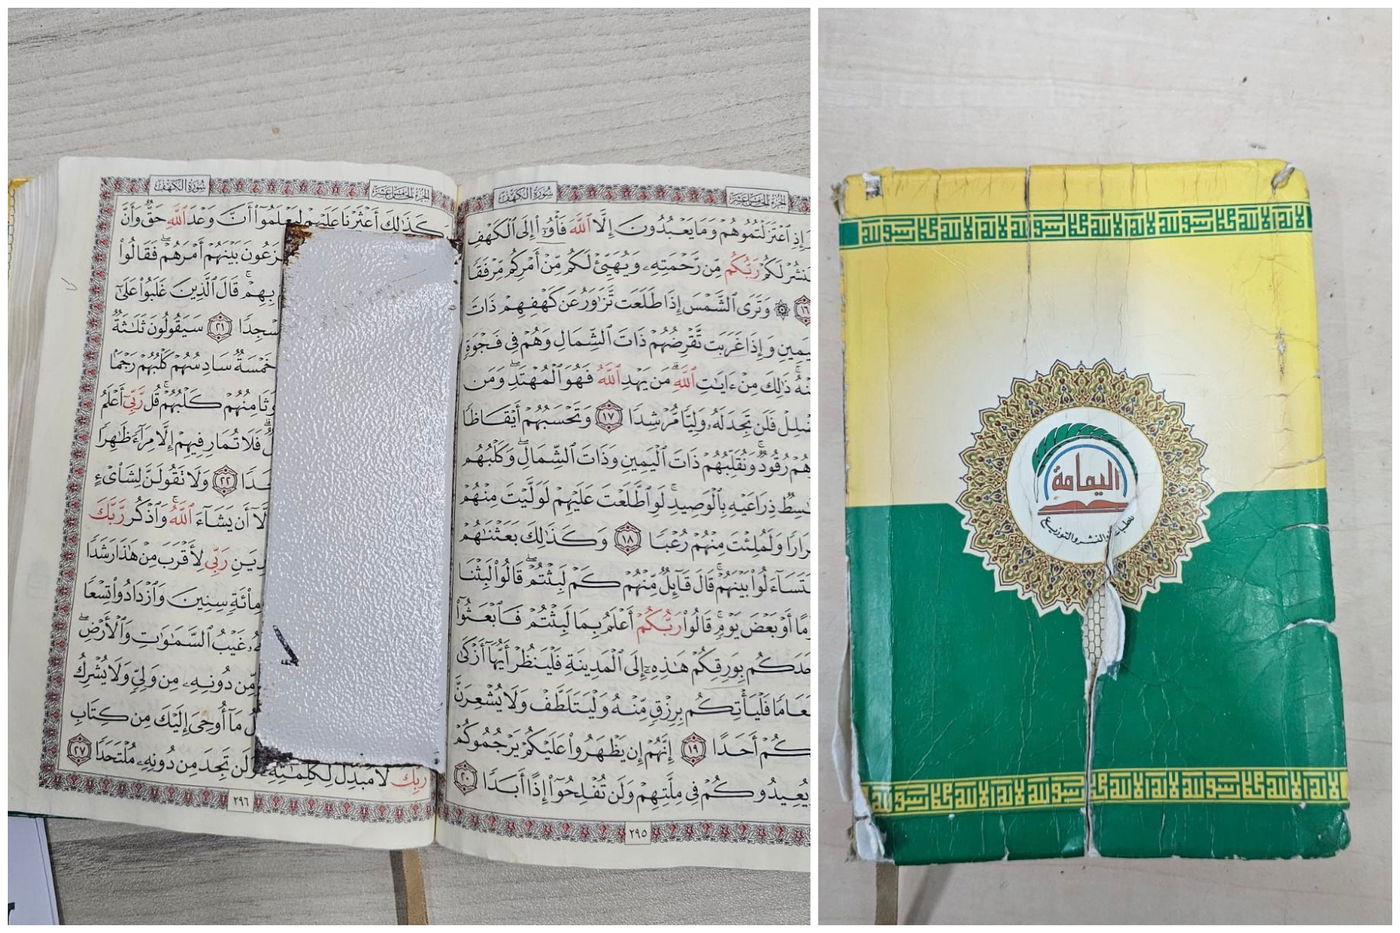 سُورَةُ الكَهْفِ
وَإِذِ ٱعْتَزَلْتُمُوهُمْ وَمَا يَعْبُدُونَ إِلَّا ٱللَّهَ فَأْوُۥٓا۟ إِلَى ٱلْكَهْفِ
يَنشُرْ لَكُمْ رَبُّكُم مِّن رَّحْمَتِهِۦ وَيُهَيِّئْ لَكُم مِّنْ أَمْرِكُم مِّرْفَقًا
١٦ ۞ وَتَرَى ٱلشَّمْسَ إِذَا طَلَعَت تَّزَٰوَرُ عَن كَهْفِهِمْ ذَاتَ
ٱلْيَمِينِ وَإِذَا غَرَبَت تَّقْرِضُهُمْ ذَاتَ ٱلشِّمَالِ وَهُمْ فِى فَجْوَةٍ
مِّنْهُ ذَٰلِكَ مِنْ ءَايَٰتِ ٱللَّهِ مَن يَهْدِ ٱللَّهُ فَهُوَ ٱلْمُهْتَدِ وَمَن
يُضْلِلْ فَلَن تَجِدَ لَهُۥ وَلِيًّا مُّرْشِدًا ١٧ وَتَحْسَبُهُمْ أَيْقَاظًا
وَهُمْ رُقُودٌ وَنُقَلِّبُهُمْ ذَاتَ ٱلْيَمِينِ وَذَاتَ ٱلشِّمَالِ وَكَلْبُهُم
بَٰسِطٌ ذِرَاعَيْهِ بِٱلْوَصِيدِ لَوِ ٱطَّلَعْتَ عَلَيْهِمْ لَوَلَّيْتَ مِنْهُمْ
فِرَارًا وَلَمُلِئْتَ مِنْهُمْ رُعْبًا ١٨ وَكَذَٰلِكَ بَعَثْنَٰهُمْ
لِيَتَسَآءَلُوا۟ بَيْنَهُمْ قَالَ قَآئِلٌ مِّنْهُمْ كَمْ لَبِثْتُمْ قَالُوا۟ لَبِثْنَا
يَوْمًا أَوْ بَعْضَ يَوْمٍ قَالُوا۟ رَبُّكُمْ أَعْلَمُ بِمَا لَبِثْتُمْ فَٱبْعَثُوٓا۟
أَحَدَكُم بِوَرِقِكُمْ هَٰذِهِۦٓ إِلَى ٱلْمَدِينَةِ فَلْيَنظُرْ أَيُّهَآ أَزْكَىٰ
طَعَامًا فَلْيَأْتِكُم بِرِزْقٍ مِّنْهُ وَلْيَتَلَطَّفْ وَلَا يُشْعِرَنَّ
بِكُمْ أَحَدًا ١٩ إِنَّهُمْ إِن يَظْهَرُوا۟ عَلَيْكُمْ يَرْجُمُوكُمْ
أَوْ يُعِيدُوكُمْ فِى مِلَّتِهِمْ وَلَن تُفْلِحُوٓا۟ إِذًا أَبَدًا ٢٠
٢٩٥
الجزء الخامس عشر
سُورَةُ الكَهْفِ
وَكَذَٰلِكَ أَعْثَرْنَا عَلَيْهِمْ لِيَعْلَمُوٓا۟ أَنَّ وَعْدَ ٱللَّهِ حَقٌّ وَأَنَّ
يَتَنَٰزَعُونَ بَيْنَهُمْ أَمْرَهُمْ فَقَالُوا۟
بِهِمْ قَالَ ٱلَّذِينَ غَلَبُوا۟ عَلَىٰٓ
مَّسْجِدًا ٢١ سَيَقُولُونَ ثَلَٰثَةٌ
خَمْسَةٌ سَادِسُهُمْ كَلْبُهُمْ رَجْمًۢا
وَثَامِنُهُمْ كَلْبُهُمْ قُل رَّبِّىٓ أَعْلَمُ
فَلَا تُمَارِ فِيهِمْ إِلَّا مِرَآءً ظَٰهِرًا
أَحَدًا ٢٢ وَلَا تَقُولَنَّ لِشَا۟ىْءٍ
إِلَّآ أَن يَشَآءَ ٱللَّهُ وَٱذْكُر رَّبَّكَ
يَهْدِيَنِ رَبِّى لِأَقْرَبَ مِنْ هَٰذَا رَشَدًا
مِا۟ئَةٍ سِنِينَ وَٱزْدَادُوا۟ تِسْعًا
غَيْبُ ٱلسَّمَٰوَٰتِ وَٱلْأَرْضِ
مِّن دُونِهِۦ مِن وَلِىٍّ وَلَا يُشْرِكُ
مَآ أُوحِىَ إِلَيْكَ مِن كِتَابِ
رَبِّكَ لَا مُبَدِّلَ لِكَلِمَٰتِهِۦ وَلَن تَجِدَ مِن دُونِهِۦ مُلْتَحَدًا ٢٧
٢٩٦
اليمامة
للطباعة والنشر والتوزيع